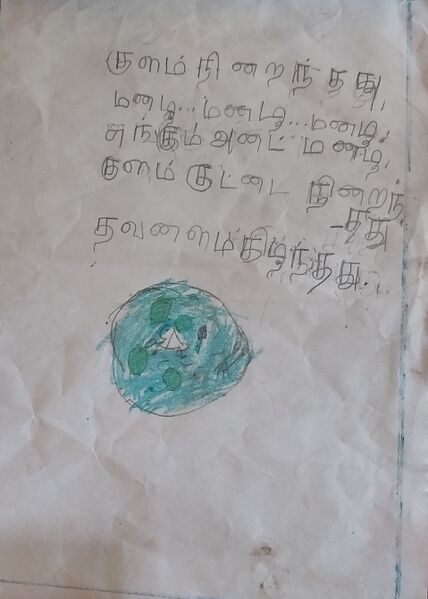 குளம் நிறைந்தது,
மழை... மழை... மழை,
எங்கும் அடை மழை,
குளம் குட்டை நிறைந்
-தது
தவளை மகிழ்ந்தது.